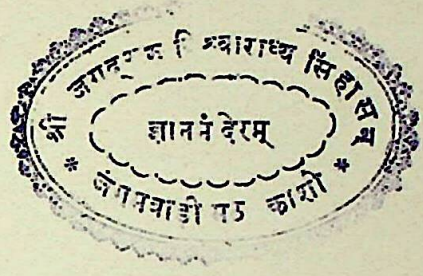 श्री जगद्गुरु विश्वाराध्य सिंहासन
ज्ञाननंदेरम्
* जंगमवाडी मठ काशी *